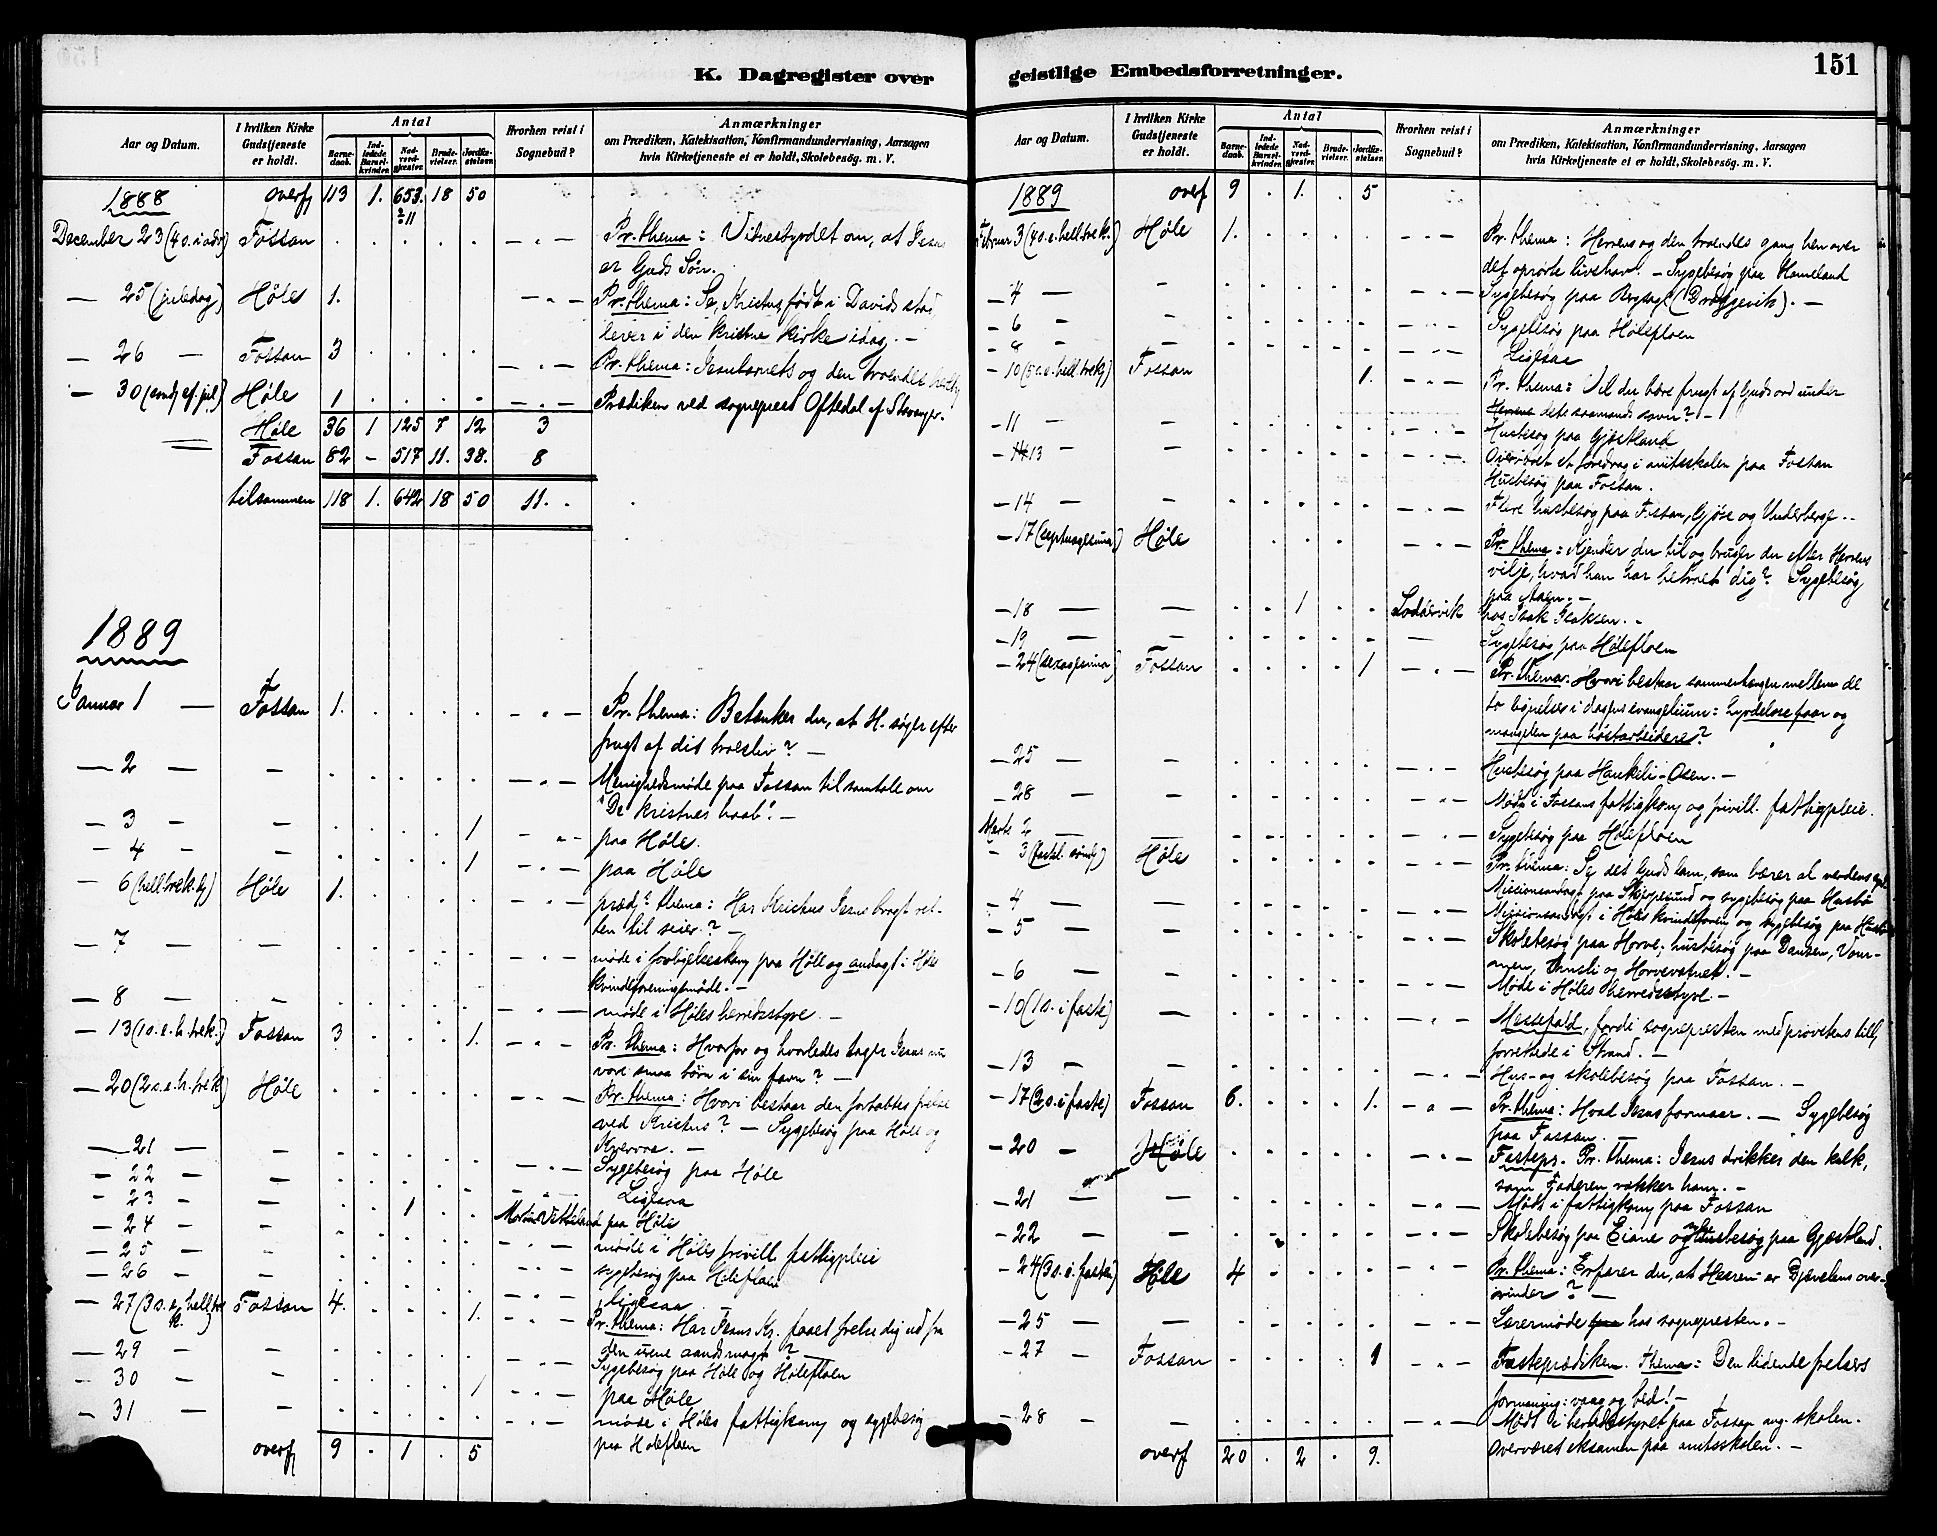 K. Dagregister over
Aar og Datum.
I hvilken Kirke Gudstjeneste er holdt.
Antal
Barnedaab.
Indledede Barselkvinder.
Nadverdgjester.
Brudevielser.
Jordfæstelser.
Hvorhen reist i Sognebud?
Anmærkninger
om Prædiken, Katekisation, Konfirmandundervisning, Aarsagen
hvis Kirketjeneste ei er holdt, Skolebesög. m. V.
1888 overf 113 1. 653. 18 50
2/11
December 23 (4 s. i adv) Fossan Pr. thema: Vidnesbyrdet om, at Jesus
er Guds Søn.
— 25 (juledag) Høle 1. Pr. thema: Se, Kristus, født i Davids stad
lever i den kristne kirke idag. —
— 26 — Fossan 3 Pr. thema: Jesubarnets og den troendes
— 30 (sønd. ef. jul) Høle 1 Prædiken ved sogneprest Oftedal af Stavanger.
Høle 36 1 125 7 12 3
Fossan 82 – 517 11. 38. 8
tilsammen 118 1. 642 18 50 11.
1889
Januar 1 — Fossan 1. Pr. thema: Betænker du, at H. søger efter
frugt af dit troesliv? —
— 2 — — Menighedsmøde paa Fossan til samtale om
"De kristnes haab". —
— 3 — — 1 paa Høle.
— 4 — — 1 paa Høle
— 6 (hell. trek. dg) Høle 1. præd. thema: Har Kristus Jesus bragt ret-
ten til seier? —
— 7 — — møde i forligelseskom. paa Høle og andagt i Høles
kvindeforeningsmøde. —
— 8 — — møde i Høles herredsstyre. —
— 13 (1 s. e. h. trek.) Fossan 3 1. Pr. thema: Hvorfor og hvorledes tager Jesus nu
vore smaa børn i sin favn? —
— 20 (2 s. e. h. trek) Høle Pr. thema: Hvori bestaar den fortabtes frelse
ved Kristus? — Sygebesøg paa Høle og
— 21 —
— 22 — — Sygebesøg paa Høle
— 23 — — 1 Ligesaa
— 24 — — paa Høle
— 25 — — møde i Høles frivill. fattigpleie
— 26 — — sygebesøg paaØlefloen
— 27 (3 s. e. hell. trek.) Fossan 4. 1. ligesaa —
Pr. thema: Har Jesus Kr. faaet frelse dig ud fra
— 29 — — den urene aandsmagt? —
— 30 — — 1 Sygebesøg paa Høle og Hølefloen
paa Høle
— 31 — — møde i Høles fattigkom. og sygebesøg
overf 9 . 1 . 5 paa Hølefloen
geistlige Embedsforretninger.
151
Aar og Datum.
I hvilken Kirke Gudstjeneste er holdt.
Antal
Barnedaab.
Indledede Barselkvinder.
Nadverdgjester.
Brudevielser.
Jordfæstelser.
Hvorhen reist i Sognebud?
Anmærkninger
om Prædiken, Katekisation, Konfirmandundervisning, Aarsagen
hvis Kirketjeneste ei er holdt, Skolebesög. m. V.
1889 overf 9 . 1. . 5
Februar 3 (4 s. e. hell. trek.) Høle 1. Pr. thema: Herrens og den troendes gang hen over
det oprørte livshav. — Sygebesøg paa Hameland
— 4 — — Sygebesøg paa Bergsagel (Dreggevik). —
— 6 — — Sygebesøg paa Hølefloen
— 8 — — Ligesaa
— 10 (5 s. e. hell. trek) Fossan 1. Pr. thema: Vil du bære frugt af Guds ord under
dets saamands savn? —
— 11 — — Husbesøg paa Gjøstland
— 13 — Overværet et foredrag i amtsskolen paa Fossan
Husbesøg paa Fossan.
— 14 — — Flere husbesøg paa Fossan, Gjøse og Underberge. —
— 17 (septuagesima.) Høle Pr. thema: Kjender du til og bruger du efter Herrens
vilje, hvad han har betroet dig? Sygebesøg
paa Aasen. —
— 18 — — 1 Loddervik hos Isak Isaksen. —
— 19 — — Sygebesøg paa Hølefloen
— 24 (sexagesima) Fossan 1 Pr. Thema: Hvori bestaar sammenhængen mellem de
to lignelser i dagens evangelium: hyrdeløse faar og
mangelen paa høstarbeidere?
— 25 — — Husbesøg paa Haukeli-Osen. —
— 28 — — Møde i Fossans fattigkom. og frivill. fattigpleie.
Marts 2 — — Sygebesøg paa Hølefloen
— 3 (fastel. sønd) Høle Pr. thema: Se det Guds lam, som bærer al verdens synd.
— 4 — — Missionsandagt paa Skjepesund og sygebesøg paa Husbø
Missionsandagt i Høles kvindeforen. og sygebesøg paa Husbø
— 5 — — Skolebesøg paa Horve, husbesøg paa Dansen, Vour-
men, og Horvevatnet. —
— 6 — — Møde i Høles herredsstyre. —
— 10 (1 s. i faste) — Messefald, fordi sognepresten med provstens till.
forrettede i Strand. —
— 13 — — Hus- og skolebesøg paa Fossan. —
— 17 (2 s. i faste) Fossan 6. 1. Pr. thema: Hvad Jesus formaar. — Sygebesøg
paa Fossan. —
— 20 — Høle Fastepr. Pr. thema: Jesus drikker den kalk,
som Faderen rækker ham. —
— 21 — — Møde i fattigkom. paa Fossan
— 22 — — Skolebesøg paa Eiane og husbesøg paa Gjøstland.
— 24 (3 s. i faste) Høle 4 Pr. thema: Erfarer du, at Herren er Djævelens over-
vinder? —
— 25 — — Lærermøde hos sognepresten. —
— 27 — Fossan 1 Fasteprædiken. Thema: Den lidende frelsers
formaning: vaag og bed! —
— 28 — — Møde i herredsstyret paa Fossan ang. skolen.
overf 20 . 2 . 9. Overværet eksamen paa amtsskolen. —